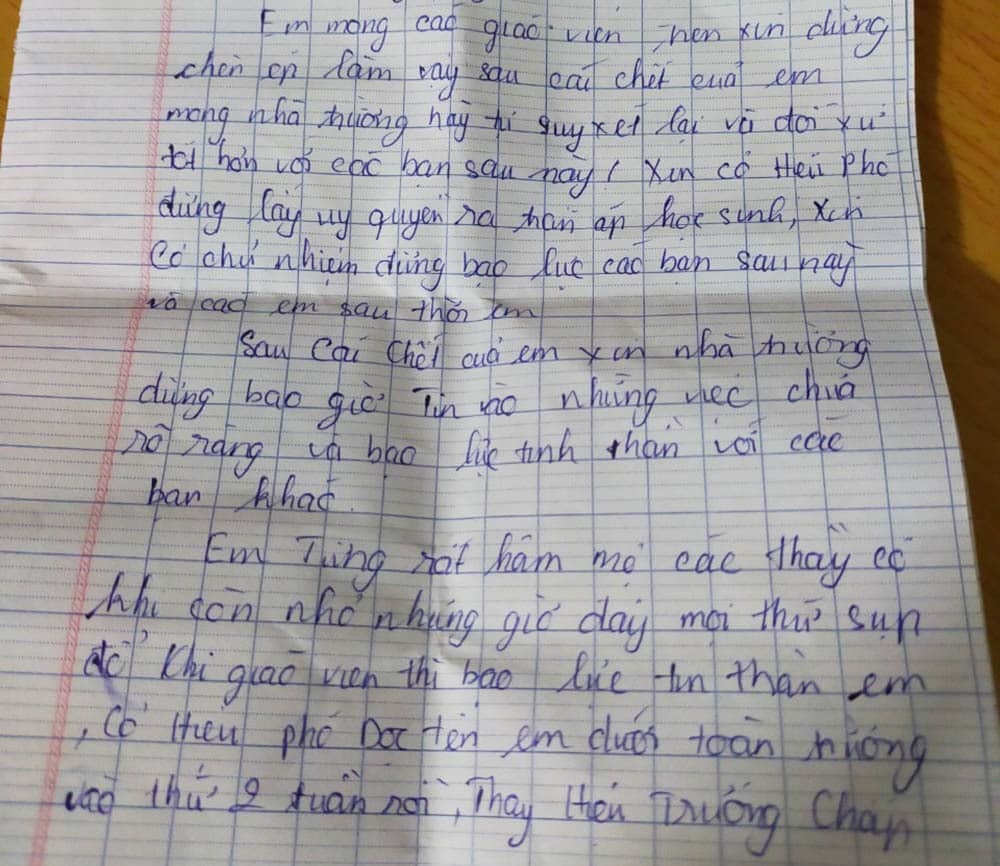 Em mong các giáo viên nên xin đừng
chèn ép làm vậy sau cái chết của em
mong nhà trường hãy hi quyxét lại và đối xử
tốt hơn với các bạn sau này! Xin cô Hiệu Phó
đừng lấy uy quyền ra chấn áp học sinh, xin
Cô chủ nhiệm đừng bạo lực các bạn sau này
và các em sau thời em
Sau Cái Chết của em xin nhà trường
đừng bao giờ Tin vào những việc chưa
rõ ràng và bạo lực tinh thần với các
bạn khác.
Em Từng rất hâm mộ các thầy cô
khi còn nhỏ nhưng giờ đây mọi thứ sụp
đổ Khi giáo viên thì bạo lực tin thần em
, Cô Hiệu phó Đọc tên em dưới toàn trường
vào thứ 2 tuần rồi, Thầy Hiệu Trưởng Chấp